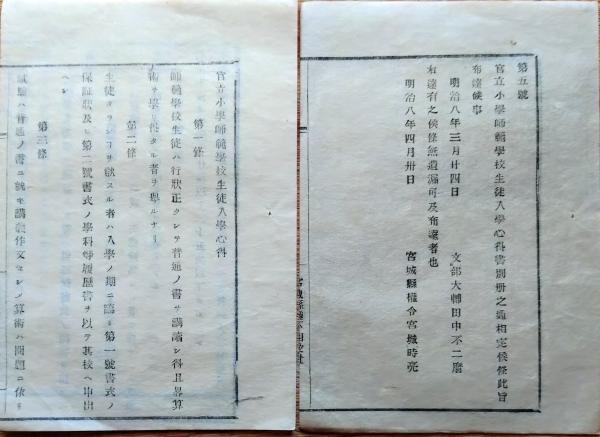 第五號
官立小學師範學校生徒入學心得書別册之通相定候條此旨
布達候事
明治八年三月廿四日 文部大輔田中不二麿
右達有之候條無遺漏可及布達者也
明治八年四月卅日 宮城縣權令宮城時亮
官立小學師範學校生徒入學心得
第一條
師範學校生徒ハ行狀正クシテ普通ノ書ヲ講讀シ得且畧算
術ヲ學ヒ得タル者ヲ擧ルナリ
第二條
生徒タランヿヲ欲スル者ハ入學ノ期ニ臨ミ第一號書式ノ
保証狀及ヒ第二號書式ノ學科等履歷書ヲ以テ其校ヘ申出
ヘシ
第三條
試驗ハ普通ノ書ニ就キ講義作文セシメ算術ハ問題ニ依リ